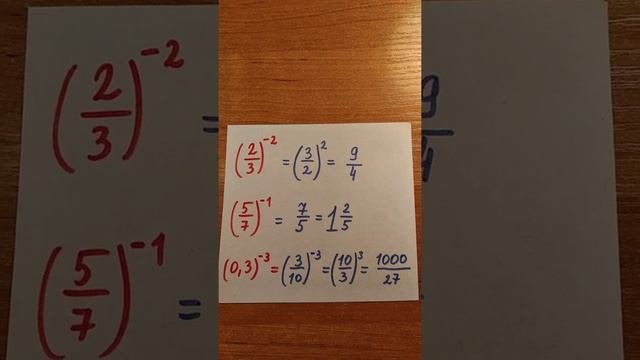 (2/3)^-2 = (3/2)^2 = 9/4
(5/7)^-1 = 7/5 = 1 2/5
(0,3)^-3 = (3/10)^-3 = (10/3)^3 = 1000/27